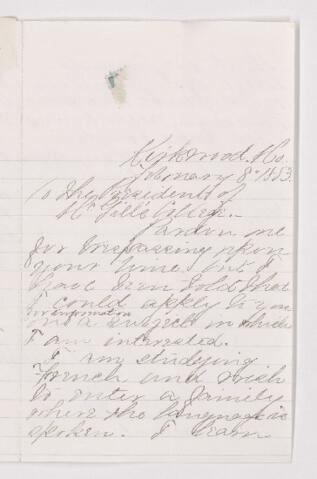 Kirkwood. Mo.
February 8th 1883.
To the Presidents of
Mc Gill's College. -
Pardon me
for trespassing upon
your time, but I
have been told that
I could apply to you
for information
on a subject in which
I am interested.
I am studying
French and wish
to enter a family
where the language is
spoken. I learn